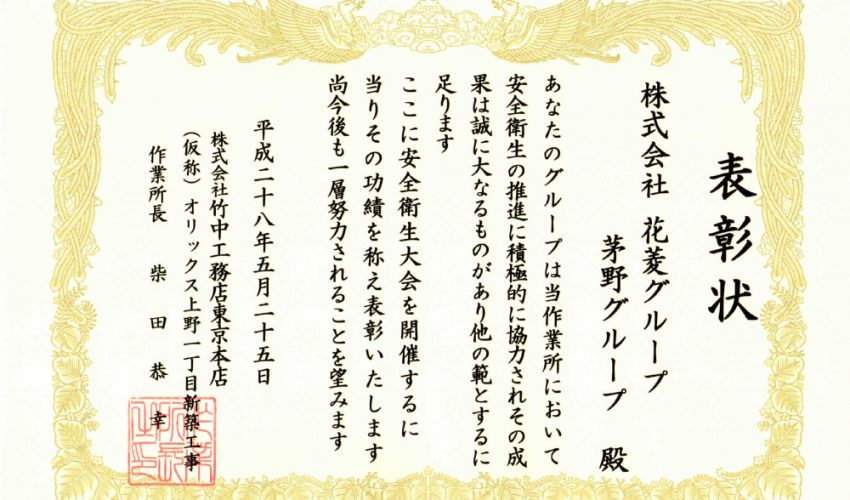 表彰状
株式会社 花菱グループ
茅野グループ 殿
あなたのグループは当作業所において
安全衛生の推進に積極的に協力されその成
果は誠に大なるものがあり他の範とするに
足ります
ここに安全衛生大会を開催するに
当りその功績を称え表彰いたします
尚今後も一層努力されることを望みます
平成二十八年五月二十五日
株式会社竹中工務店東京本店
(仮称)オリックス上野一丁目新築工事
作業所長 柴田恭幸